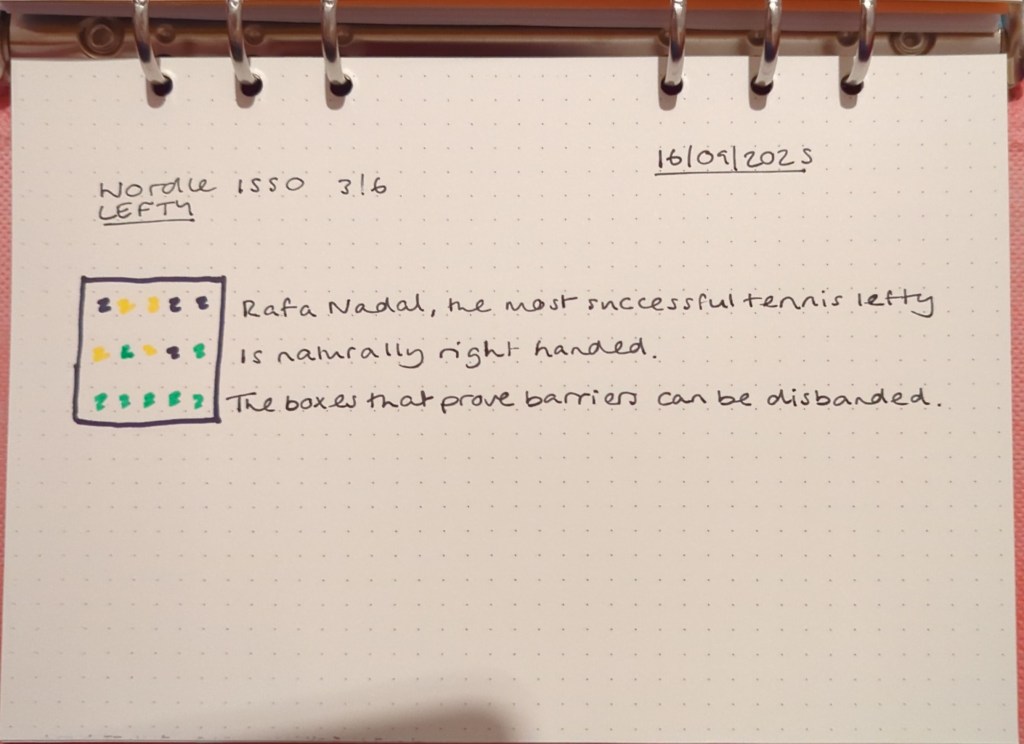 16/09/2025
Wordle 1550 3/6
LEFTY
Rafa Nadal, the most successful tennis lefty
is naturally right handed.
The boxes that prove barriers can be disbanded.